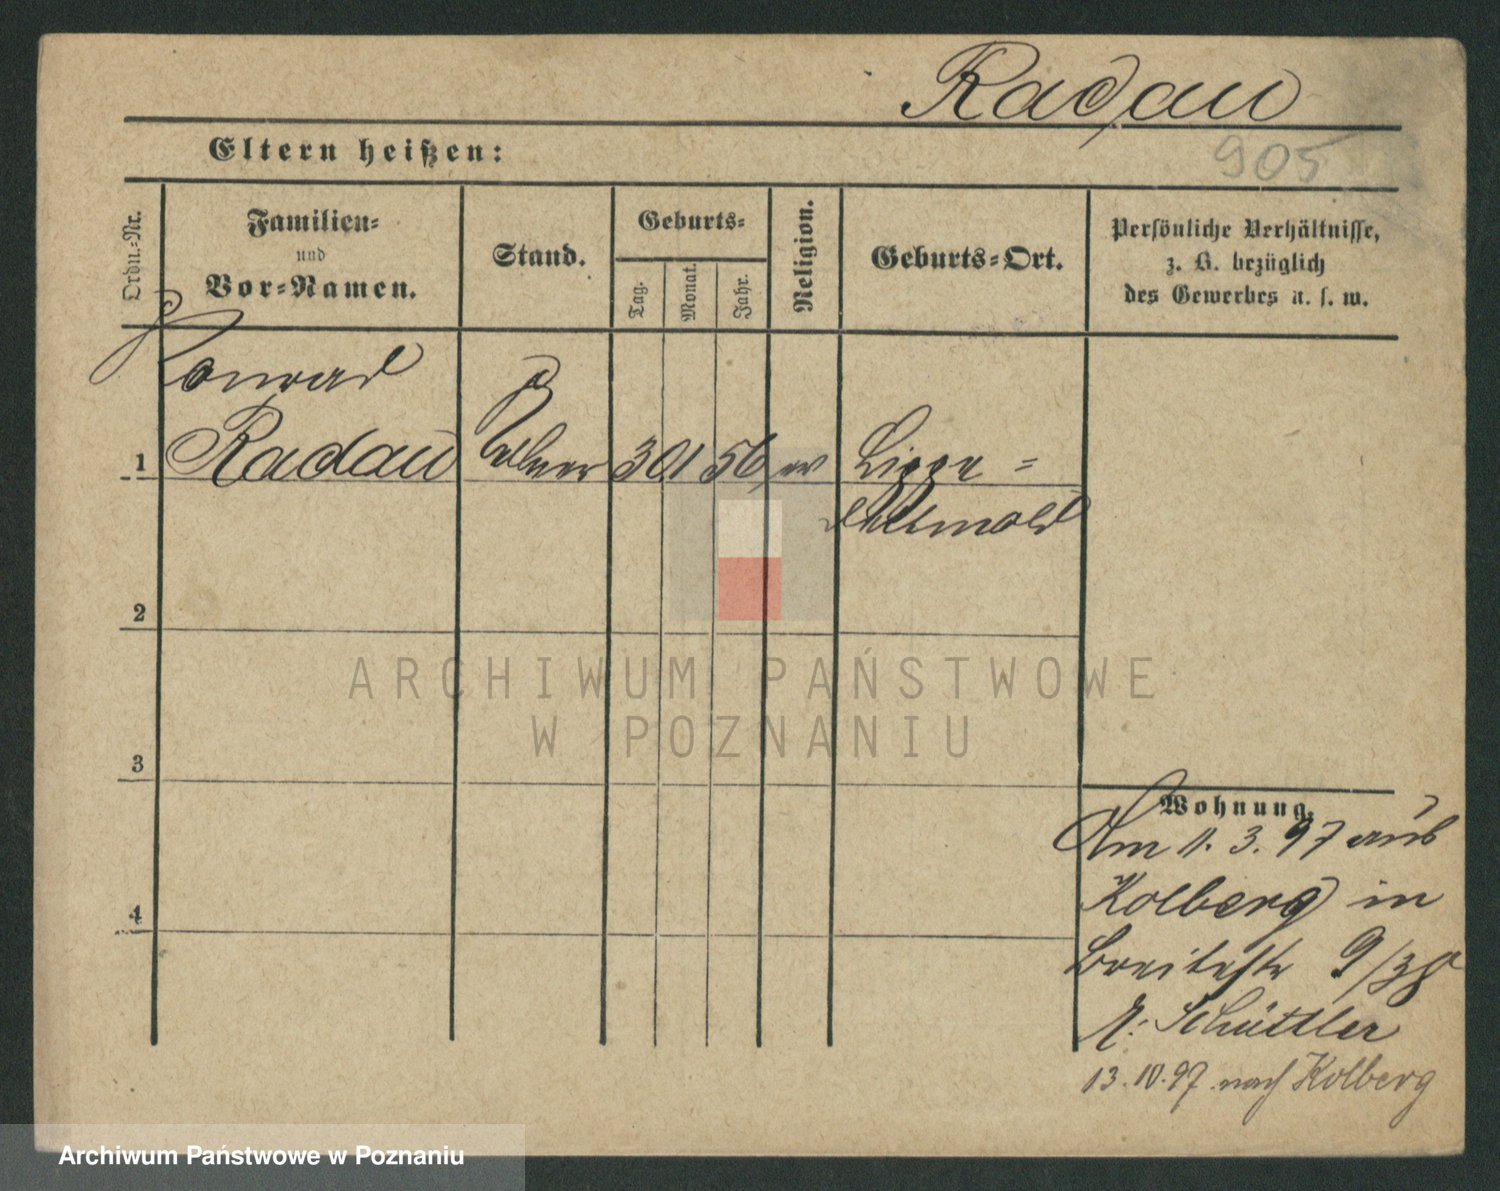 Radau
905
Eltern heißen:
Ordn.-Nr.
Familien-
und
Vor-Namen.
Stand.
Geburts-
Tag.
Monat.
Jahr.
Religion.
Geburts-Ort.
Persönliche Verhältnisse,
z. B. bezüglich
des Gewerbes u. s. w.
Konrad
1 Radau Kellner 30 1 56 ev Lippe -
Dettmold
2
3
4
Wohnung.
Am 11. 3. 97 aus
Kolberg in
Breitestr 9/38
b. Schüttler
13.10.97 nach Kolberg
ARCHIWUM PAŃSTWOWE
W POZNANIU
Archiwum Państwowe w Poznaniu